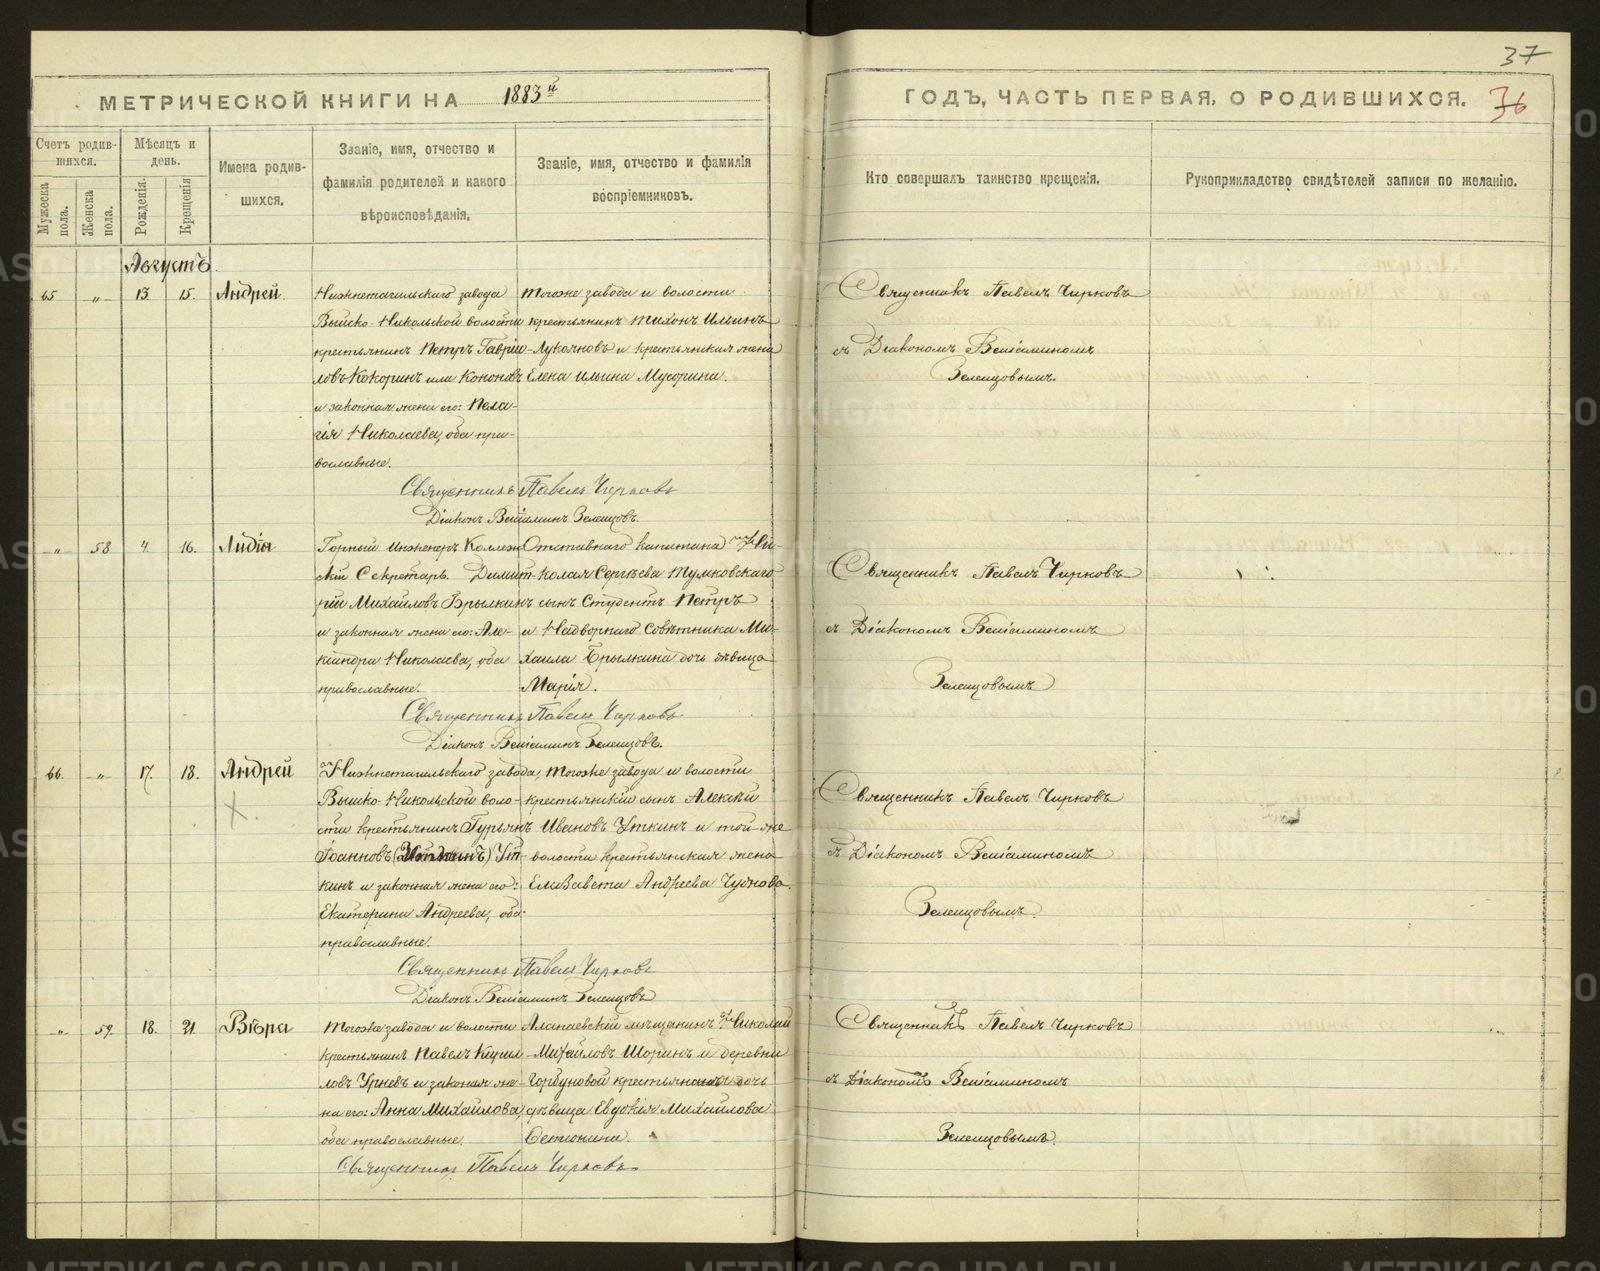 37
МЕТРИЧЕСКОЙ КНИГИ НА 1883й
ГОДЪ, ЧАСТЬ ПЕРВАЯ, О РОДИВШИХСЯ.
36
Счетъ родив-
шихся.
Мужеска
пола.
Женска
пола.
Мѣсяцъ и
день.
Рожденія.
Крещенія
Имена родив-
шихся.
Званіе, имя, отчество и
фамилія родителей и какого
вѣроисповѣданія.
Званіе, имя, отчество и фамилія
воспріемниковъ.
Кто совершалъ таинство крещенія.
Рукоприкладство свидѣтелей записи по желанію.
Августъ.
65 „ 13. 15. Андрей.
Нижнетагильскаго завода
Выйско-Никольской волости
крестьянинъ Петръ Гаврiи-
ловъ Кокоринъ или Кононовъ
и законная жена его: Пела-
гія Николаева, оба пра-
вославные.
тогоже завода и волости
крестьянинъ Тихонъ Ильинъ
Лукояновъ и крестьянская жена
Елена Ильина Мусорина.
Священникъ Павелъ Чирковъ
съ Діакономъ Веніаминомъ
Зеленцовымъ.
Священникъ Павелъ Чирковъ
Діаконъ Веніаминъ Зеленцовъ.
„ 58 4. 16. Лидія
Горный Инженеръ Коллеж-
скій Секретарь Димит-
рій Михайловъ Брылкинъ
и законная жена его: Але-
ксандра Николаева, оба
православные.
Отставнаго капитана Ни-
колая Сергѣева Тумковскаго
сынъ Студентъ Петръ
и Надворнаго Совѣтника Ми-
хаила Брылкина дочь дѣвица
Марія.
Священникъ Павелъ Чирковъ
съ Діакономъ Веніаминомъ
Зеленцовымъ
Священникъ Павелъ Чирковъ
Діаконъ Веніаминъ Зеленцовъ.
66. „ 17. 18. Андрей
Х.
Нижнетагильскаго завода,
Выйско-Никольской воло-
сти крестьянинъ Гурьянъ
Іоанновъ Ут-
кинъ и законная жена его:
Екатерина Андреева, оба
православные.
тогоже завода и волости
крестьянскій сынъ Алексѣй
Ивановъ Уткинъ и той-же
волости крестьянская жена
Елизавета Андреева Чуднова.
Священникъ Павелъ Чирковъ
съ Діакономъ Веніаминомъ
Зеленцовымъ.
Священникъ Павелъ Чирковъ
Діаконъ Веніаминъ Зеленцовъ
„ 59. 18. 21. Вѣра
Тогоже завода и волости
крестьянинъ Павелъ Кирил-
ловъ и законная же-
на его: Анна Михайлова,
оба православные.
Алапаевскій мѣщанинъ Николай
Михайловъ Шоринъ и деревни
Горбуновой дочь
дѣвица Евдокія Михайлова
Священникъ Павелъ Чирковъ
съ Діакономъ Веніаминомъ
Зеленцовымъ.
Священникъ Павелъ Чирковъ